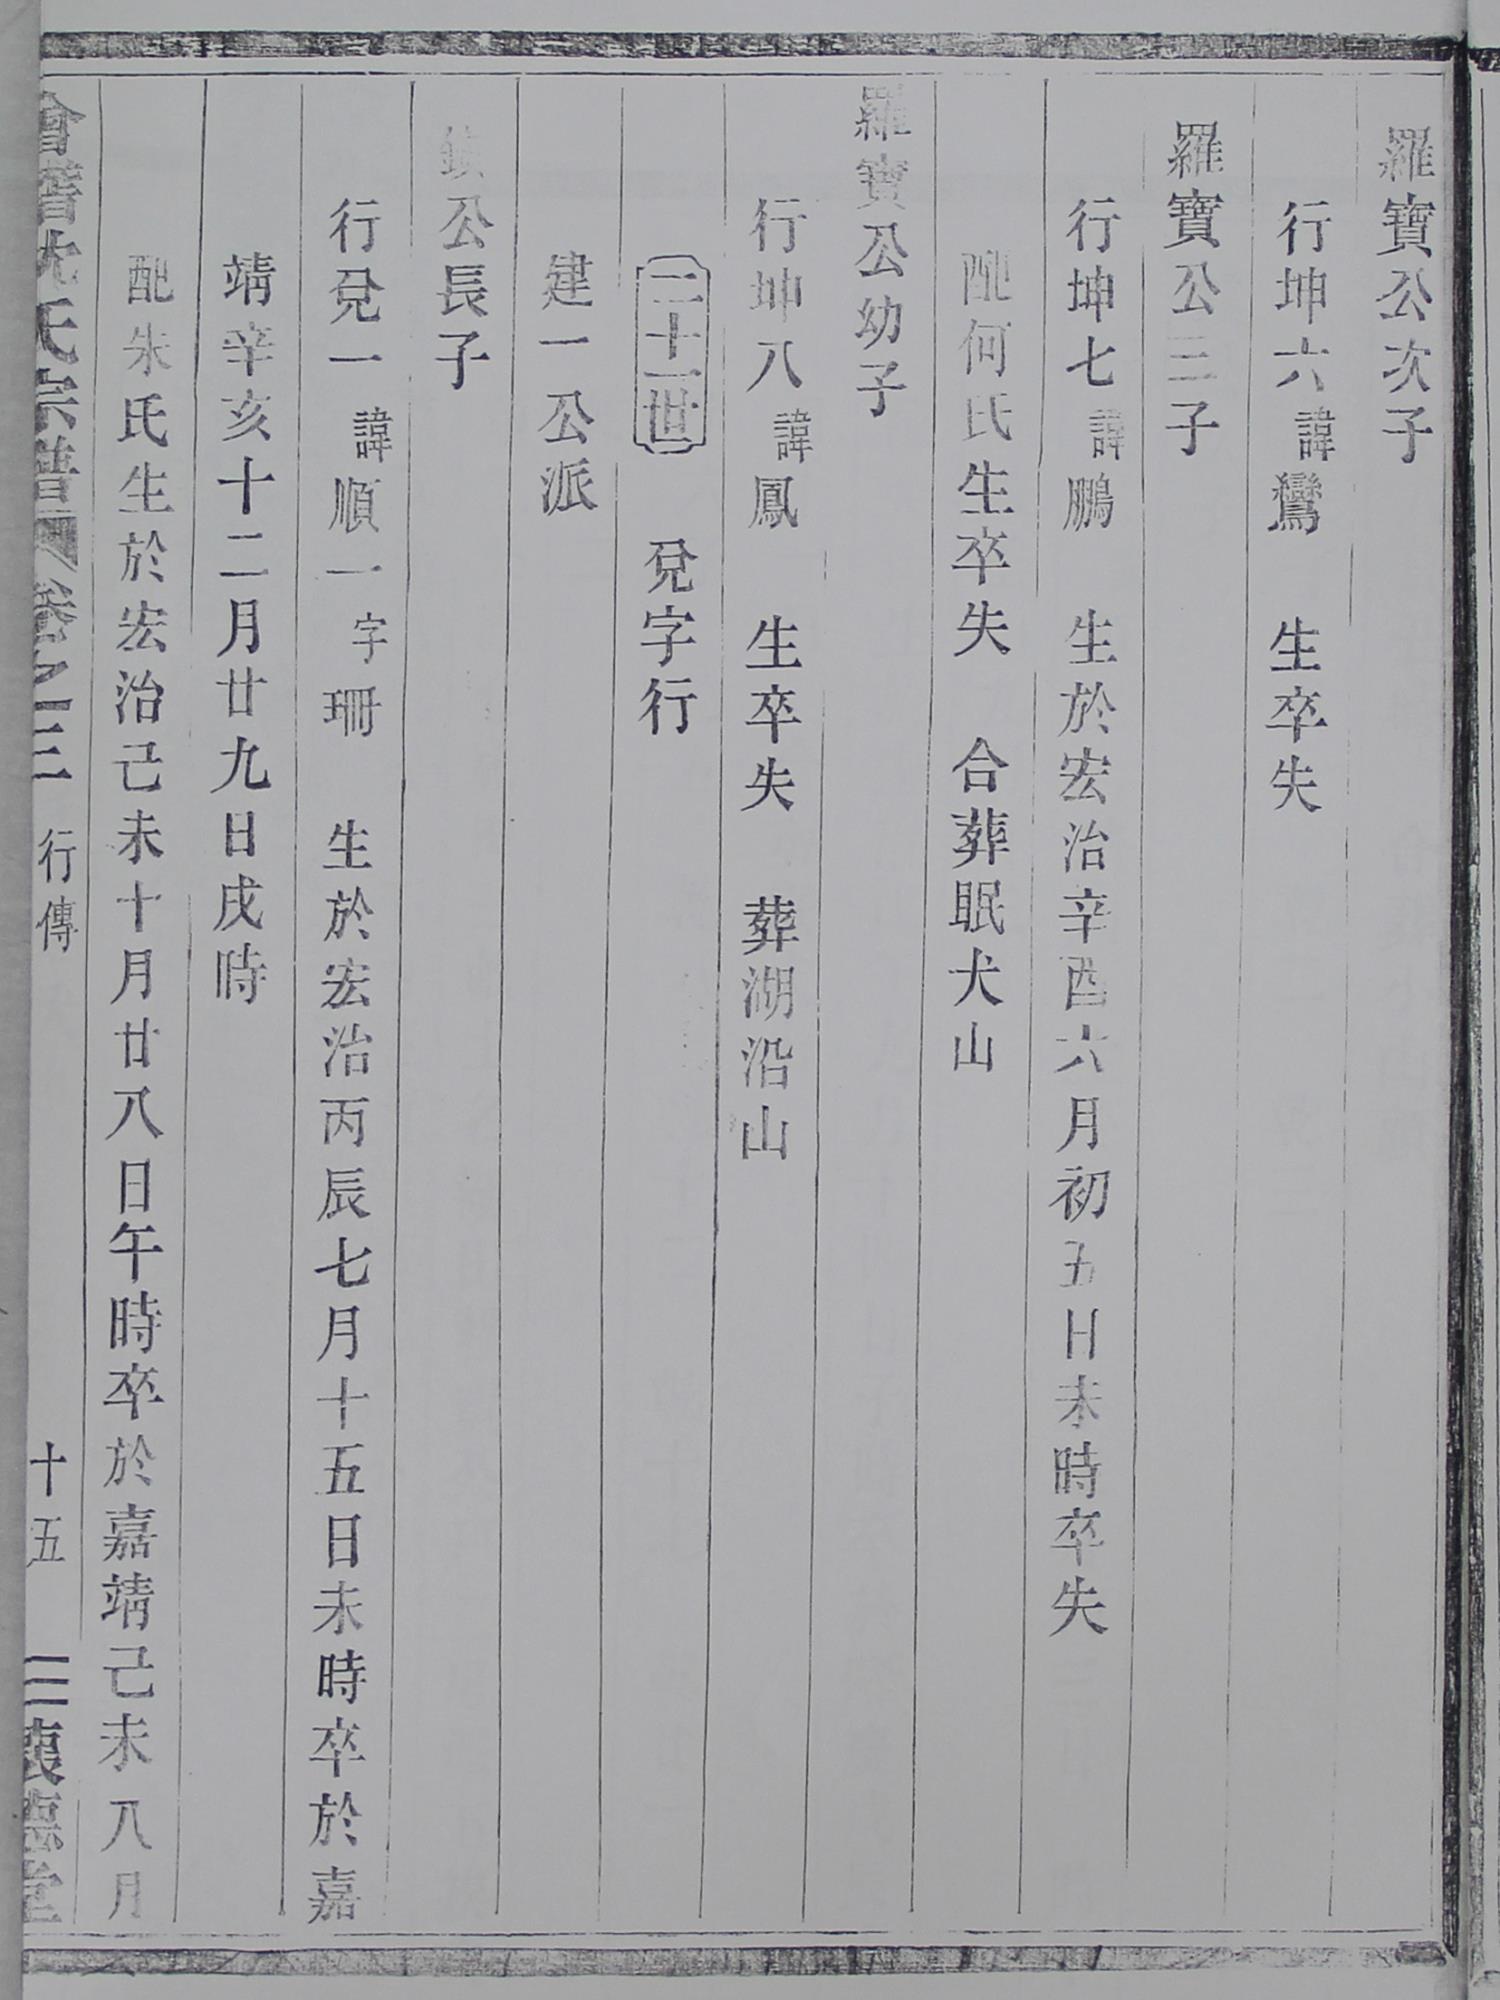 羅寶公次子
行坤六諱鸞 生卒失
羅寶公三子
行坤七諱鵬 生於宏治辛酉六月初五日未時卒失
配何氏生卒失 合葬眠犬山
羅寶公幼子
行坤八諱鳳 生卒失 葬湖沿山
二十一世 兌字行
建一公派
公長子
行兌一諱順一字珊 生於宏治丙辰七月十五日未時卒於嘉
靖辛亥十二月廿九日戌時
配朱氏生於宏治己未十月廿八日午時卒於嘉靖己未八月
會稽沈氏宗譜 卷之三 行傳 十五 懷德堂